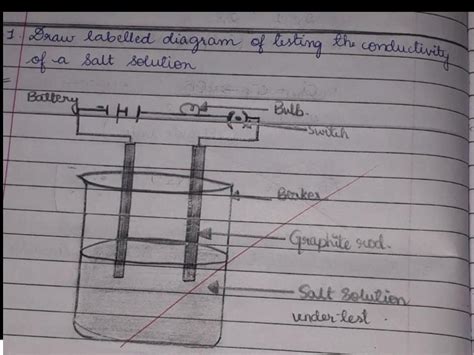 1. Draw labelled diagram of testing the conductivity
of a salt solution
Battery
Bulb.
Switch
Beaker
Graphite rod.
Salt Solution
under test.